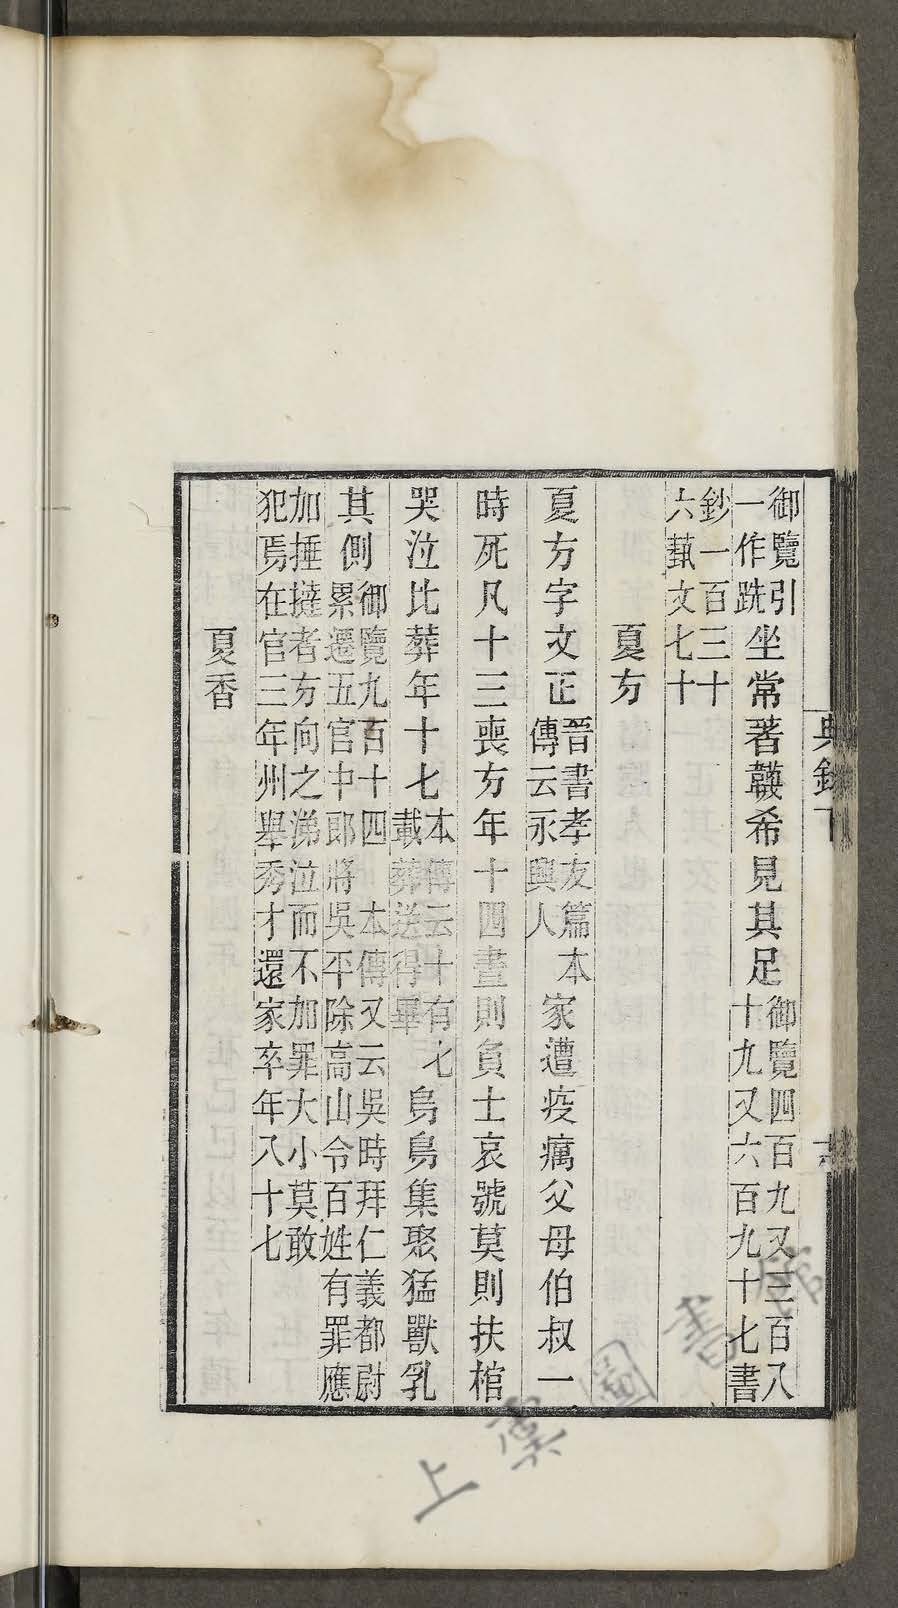 御覽引
一作跣
坐常著韈希見其足
御覽四百九又三百八
十九又六百九十七書
鈔一百三十
六埶文七十
夏方
夏方字文正
晉書孝友篇本
傳云永興人
家遭疫癘父母伯叔一
時死凡十三喪方年十四晝則負土哀號莫則扶棺
哭泣比葬年十七
本傳云十有七
載葬送得畢
烏鳥集聚猛獸乳
其側
御覽九百十四 本傳又云吳時拜仁義都尉
累遷五官中郎將吳平除高山令百姓有罪應
加捶撻者方向之涕泣而不加罪大小莫敢
犯焉在官三年州舉秀才還家卒年八十七
夏香
典錄下
上虞圖書館